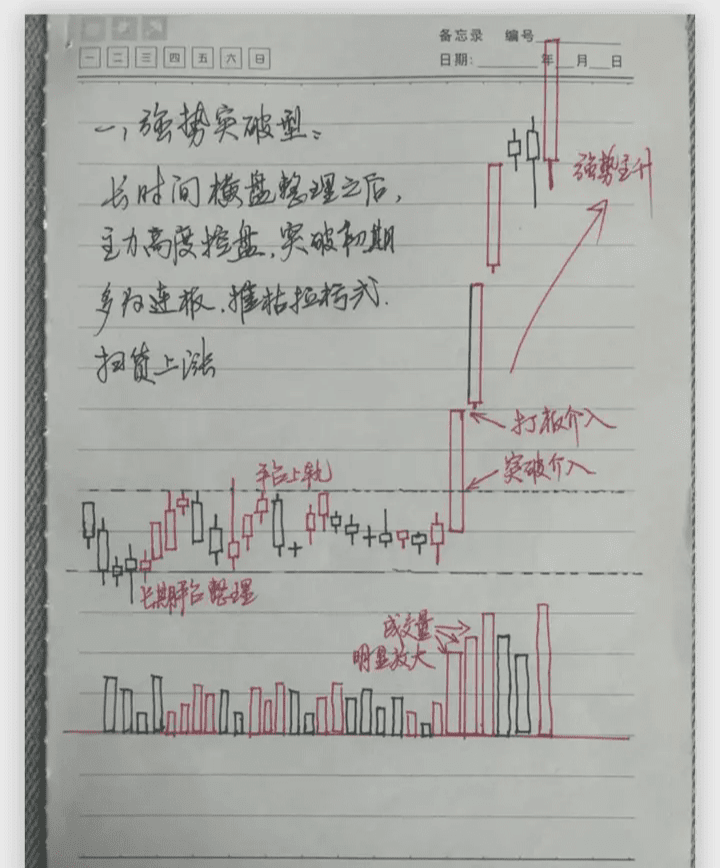 备忘录 编号
一 二 三 四 五 六 日
日期: 年 月 日
一、强势突破型:
长时间横盘整理之后,
主力高度控盘,突破初期
多为连板、摧枯拉朽式.
扫货上涨
强势主升
打板介入
突破介入
平台上轨
长期平台整理
成交量
明显放大